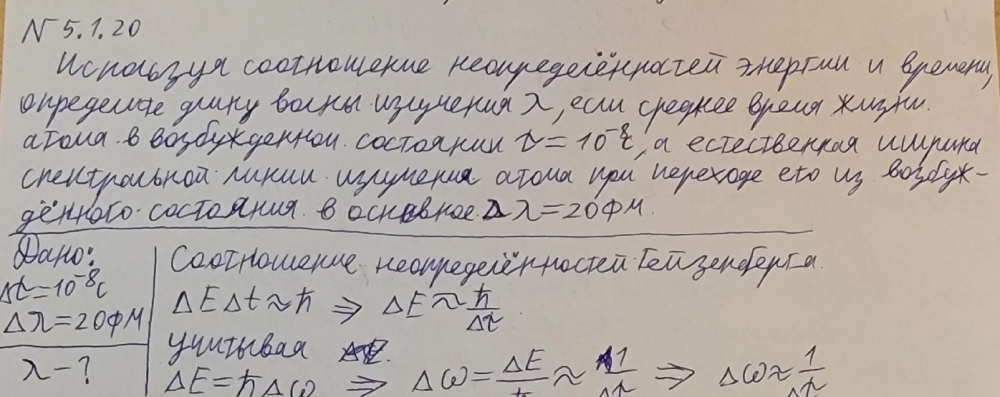 N 5.1.20
Используя соотношение неопределённостей энергии и времени,
определите длину волны излучения λ, если среднее время жизни
атома в возбужденном состоянии τ = 10⁻⁸с, а естественная ширина
спектральной линии излучения атома при переходе его из возбуж-
дённого состояния в основное Δλ=20фм.
Дано:
Δt=10⁻⁸с
Δλ=20фм
λ-?
Соотношение неопределённостей Гейзенберга.
ΔEΔt≈ħ ⇒ ΔE≈ħ/Δt.
учитывая
ΔE=ħΔω ⇒ Δω=ΔE/ħ≈1/Δt ⇒ Δω≈1/Δt